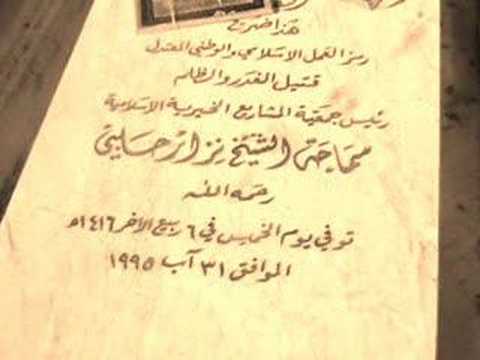 هذا ضريح
رمز العمل الاسلامي والوطني المعتدل
قتيل الغدر والظلم
رئيس جمعية المشاريع الخيرية الاسلامية
سماحة الشيخ نزار حلبي
رحمه الله
توفي يوم الخميس في ٦ ربيع الآخر ١٤١٦ه
الموافق ٣١ آب ١٩٩٥